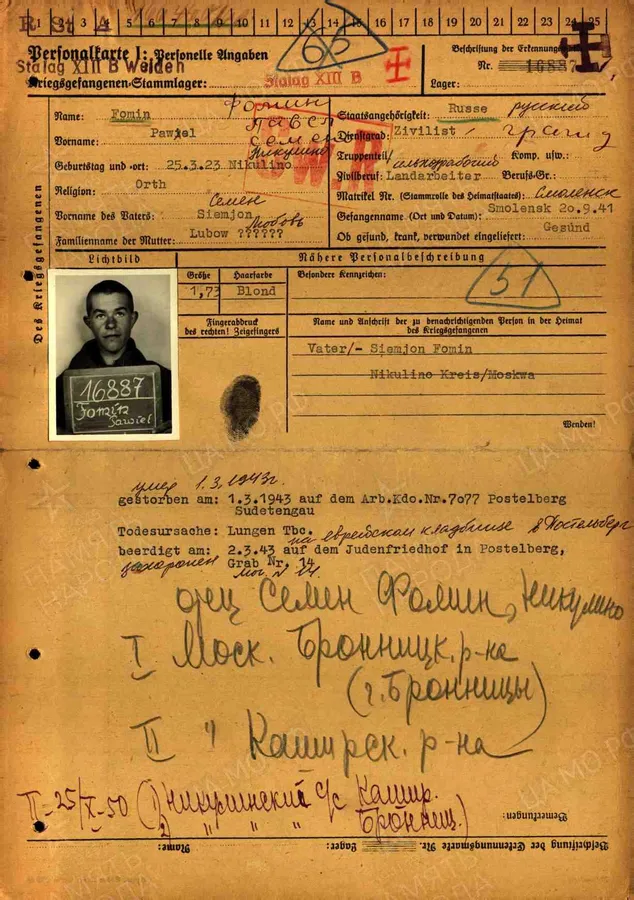 1 2 3 4 5 6 7 8 9 10 11 12 13 14 15 16 17 18 19 20 21 22 23 24 25
66
Personalkarte I: Personelle Angaben
Stalag XIII B Weiden
Kriegsgefangenen-Stammlager:
Stalag XIII B
Beschriftung der Erkennungsmarke
Nr. 16887
Lager:
Des Kriegsgefangenen
Фомин
Name: Fomin
Павел
Vorname: Pawjel
Семен
Никулино
Geburtstag und -ort: 25.3.23 Nikulino
Religion: Orth
Семен
Vorname des Vaters: Siemjon
Любовь
Familienname der Mutter: Lubow ??????
Staatsangehörigkeit: Russe русский
Dienstgrad: Zivilist гражд
Truppenteil: Komp. usw.:
Zivilberuf: Landarbeiter Berufs-Gr.:
Matrikel Nr. (Stammrolle des Heimatstaates) Смоленск
Gefangennahme (Ort und Datum): Smolensk 2o.9.41
Ob gesund, krank, verwundet eingeliefert: Gesund
Lichtbild
Größe Haarfarbe
1,73 Blond
Fingerabdruck
des rechten! Zeigefingers
Nähere Personalbeschreibung
Besondere Kennzeichen:
51
Name und Anschrift der zu benachrichtigenden Person in der Heimat
des Kriegsgefangenen
Vater/- Siemjon Fomin
Nikulino Kreis/Moskwa
Wenden!
16887
Fomin
Pawiel
умер 1.3.1943г.
gestorben am: 1.3.1943 auf dem Arb.Kdo.Nr.7o77 Postelberg
Sudetengau
Todesursache: Lungen Tbc.
на еврейском кладбище в Постельберг
beerdigt am: 2.3.43 auf dem Judenfriedhof in Postelberg,
захоронен Grab Nr. 14
мог. № 14.
отец Семен Фомин, Никулино
I Моск. Бронницк. р-на
(г. Бронницы)
II " Каширск. р-на
П-25/X-50 (1) Никулинский с/с Кашир.
2) " " " Бронниц.)
Bemerkungen:
Name: Lager: Beschriftung der Erkennungsmarke Nr.